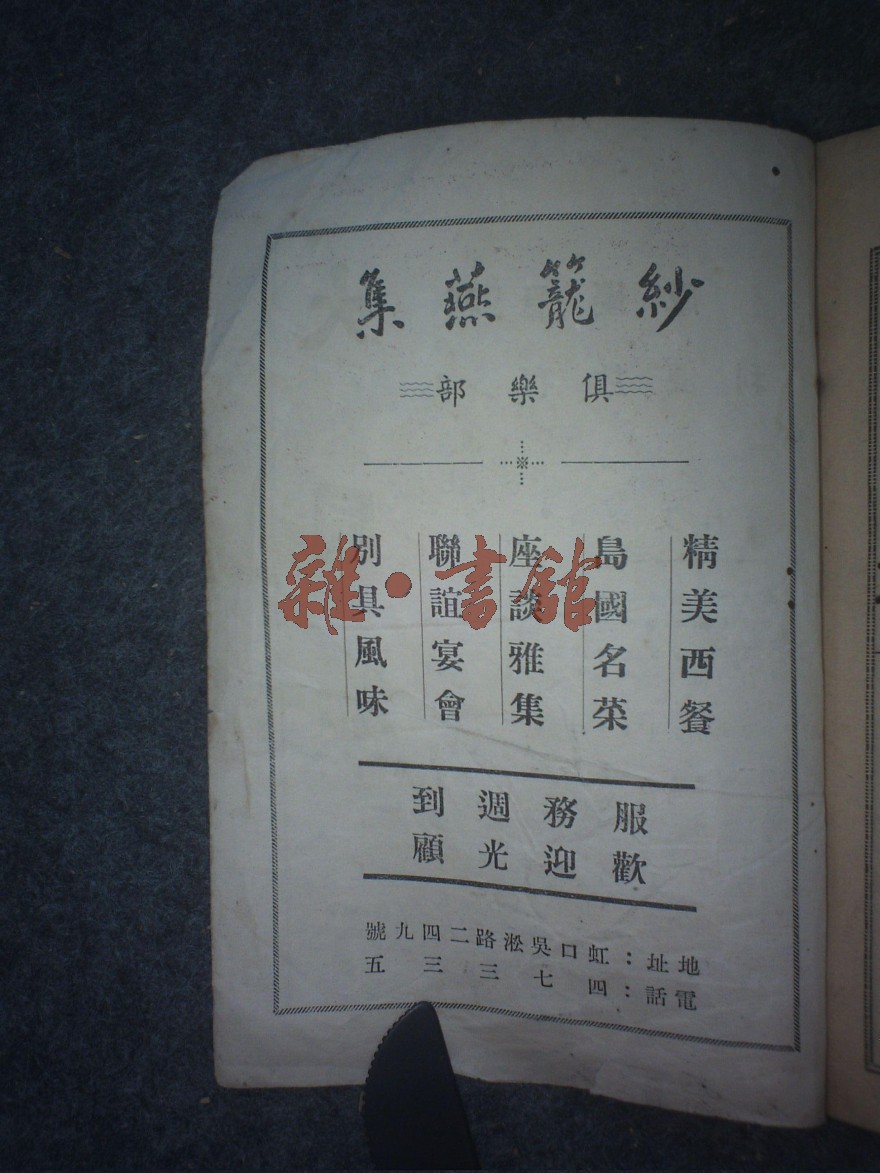 紗籠燕集
俱樂部
精美西餐
島國名菜
座談雅集
聯誼宴會
別具風味
服務週到
歡迎光顧
地址：虹口吳淞路二四九號
電話：四七三三五
雜·書館